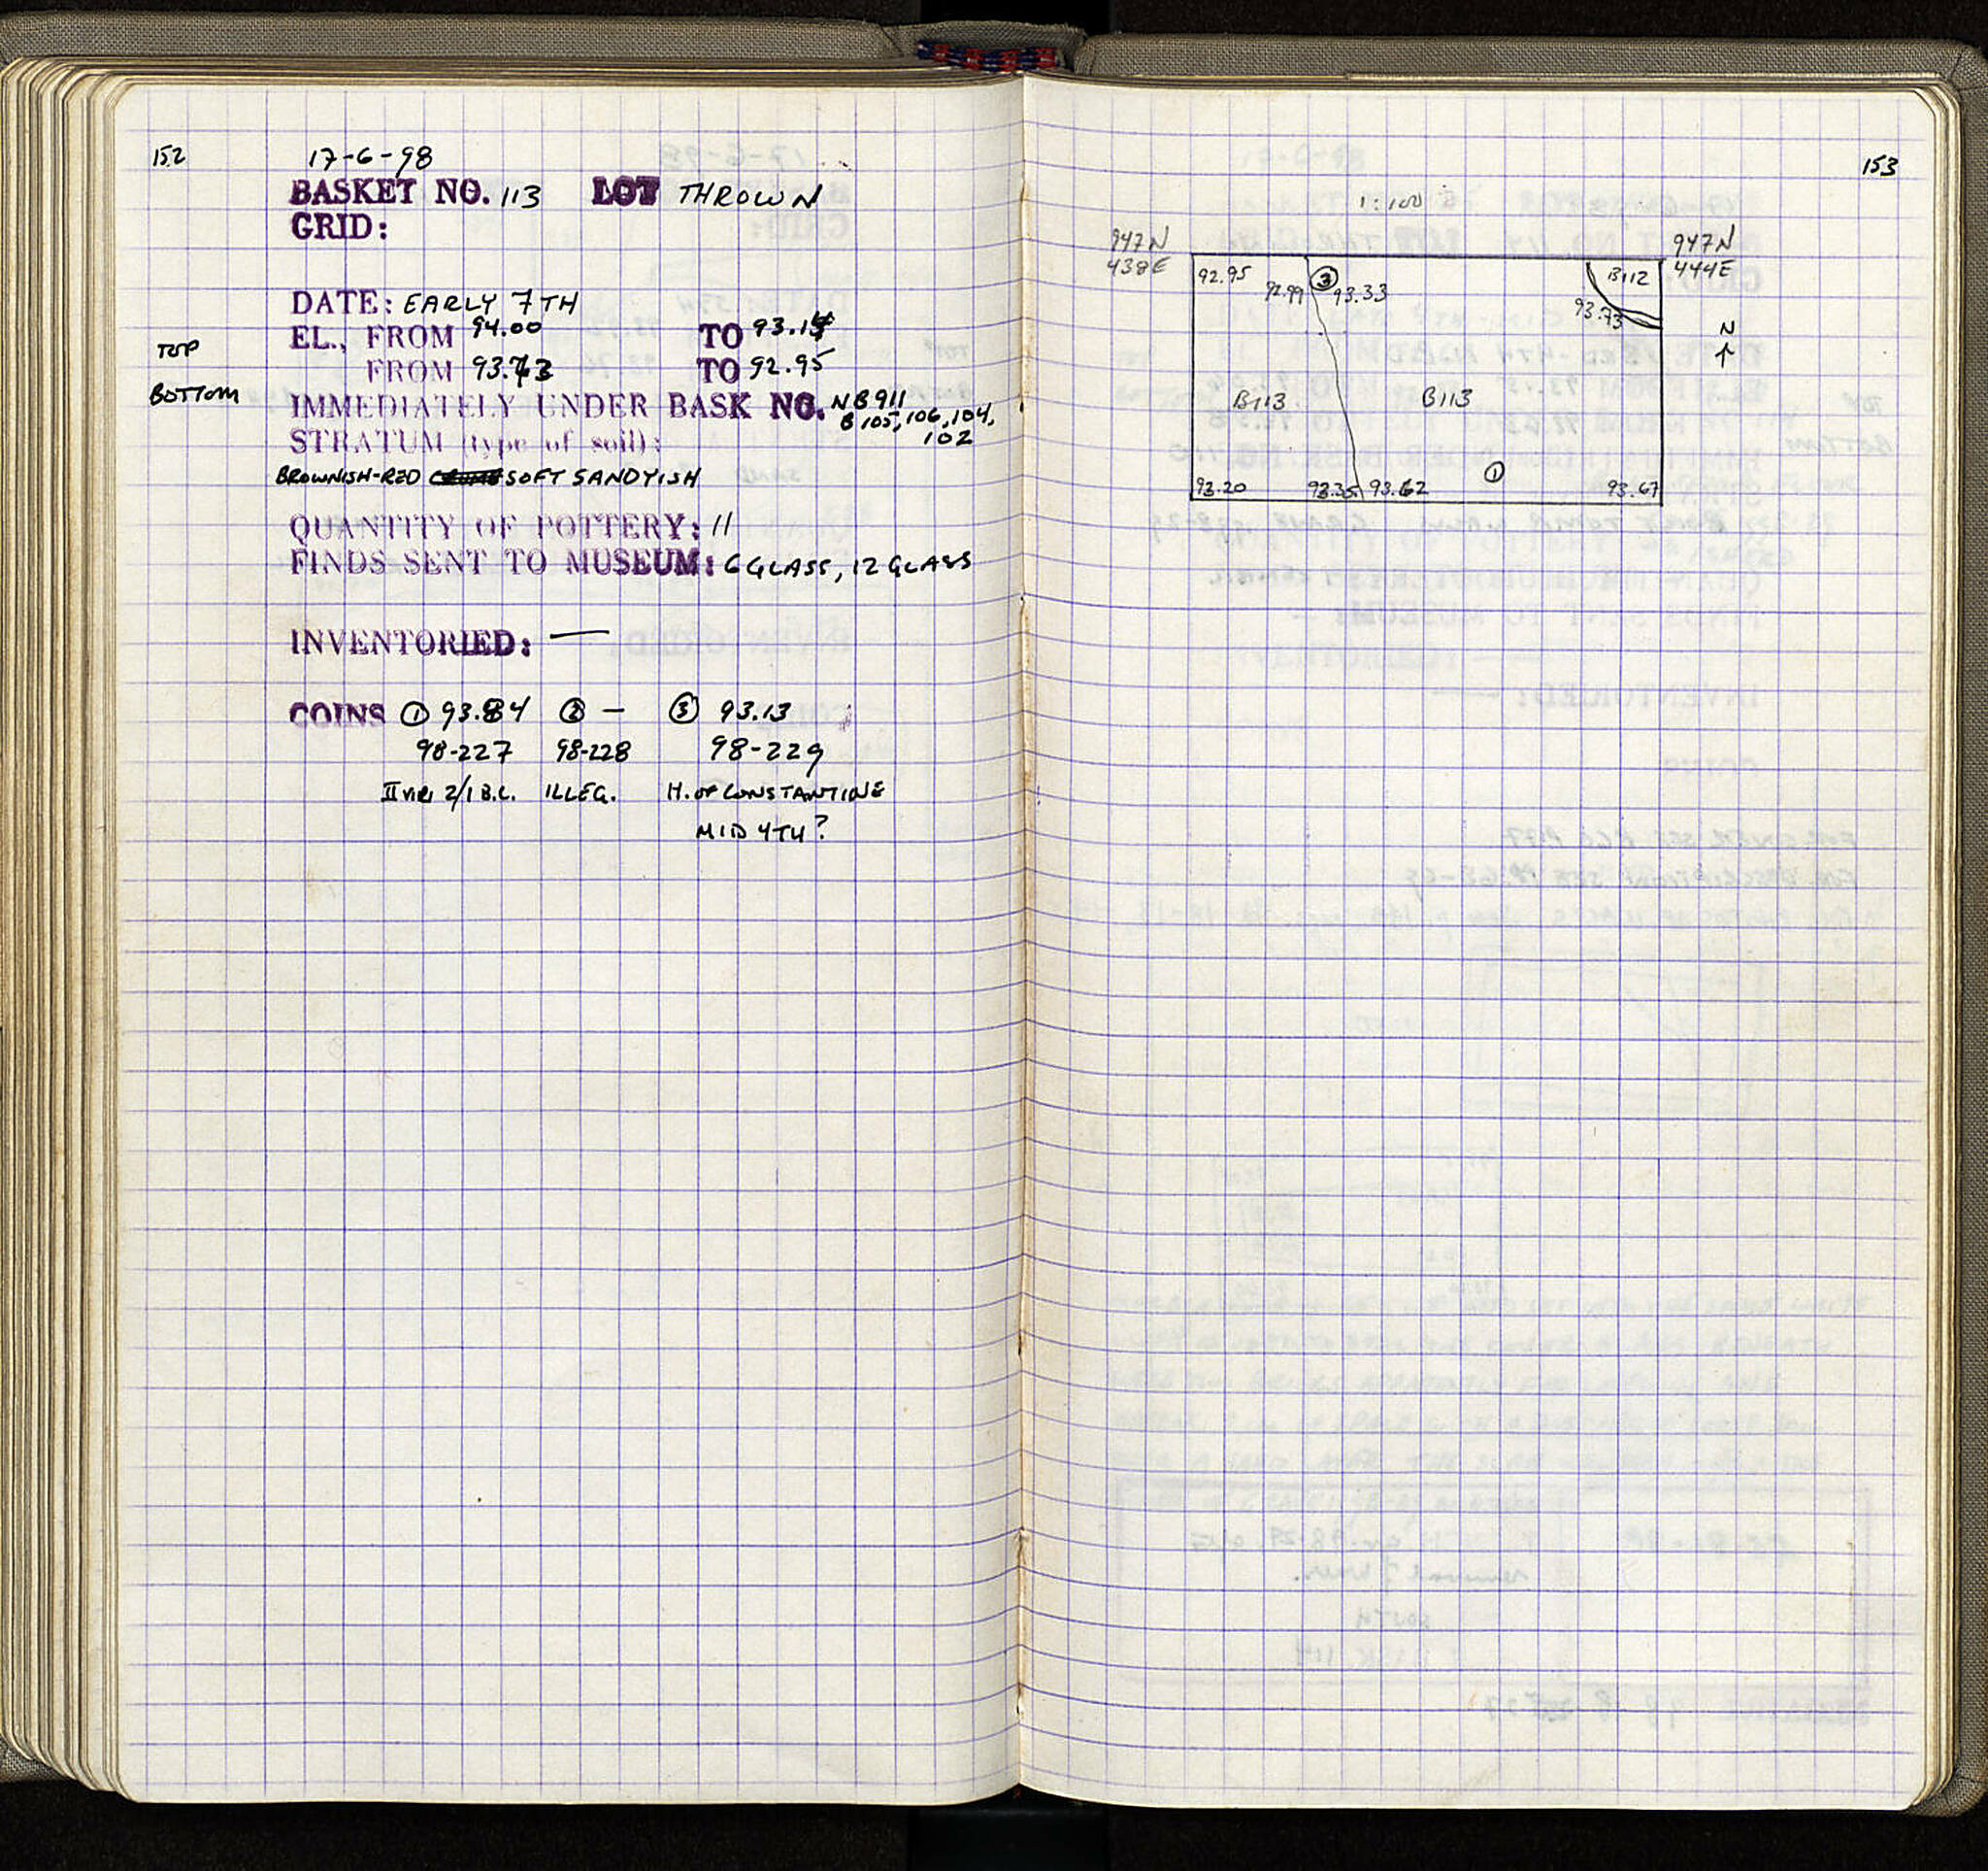 152
17-6-98
BASKET NO. 113 LOT THROWN
GRID:
DATE: EARLY 7TH
TOP EL., FROM 94.00 TO 93.14
BOTTOM FROM 93.73 TO 92.95
IMMEDIATELY UNDER BASK NO. NB911
B105, 106, 104,
STRATUM (type of soil): 102
BROWNISH-RED SOFT SANDYISH
QUANTITY OF POTTERY: 11
FINDS SENT TO MUSEUM: 6 GLASS, 12 GLASS
INVENTORIED: —
COINS ① 93.84 ② — ③ 93.13
98-227 98-228 98-229
II VIRI 2/1 B.C. ILLEG. H. OF CONSTANTINE
MID 4TH?
153
1:100
947N 947N
438E 444E
92.95 92.99 ③ 93.33 B112
93.73
N
B113 B113
①
93.20 93.35 93.62 93.67